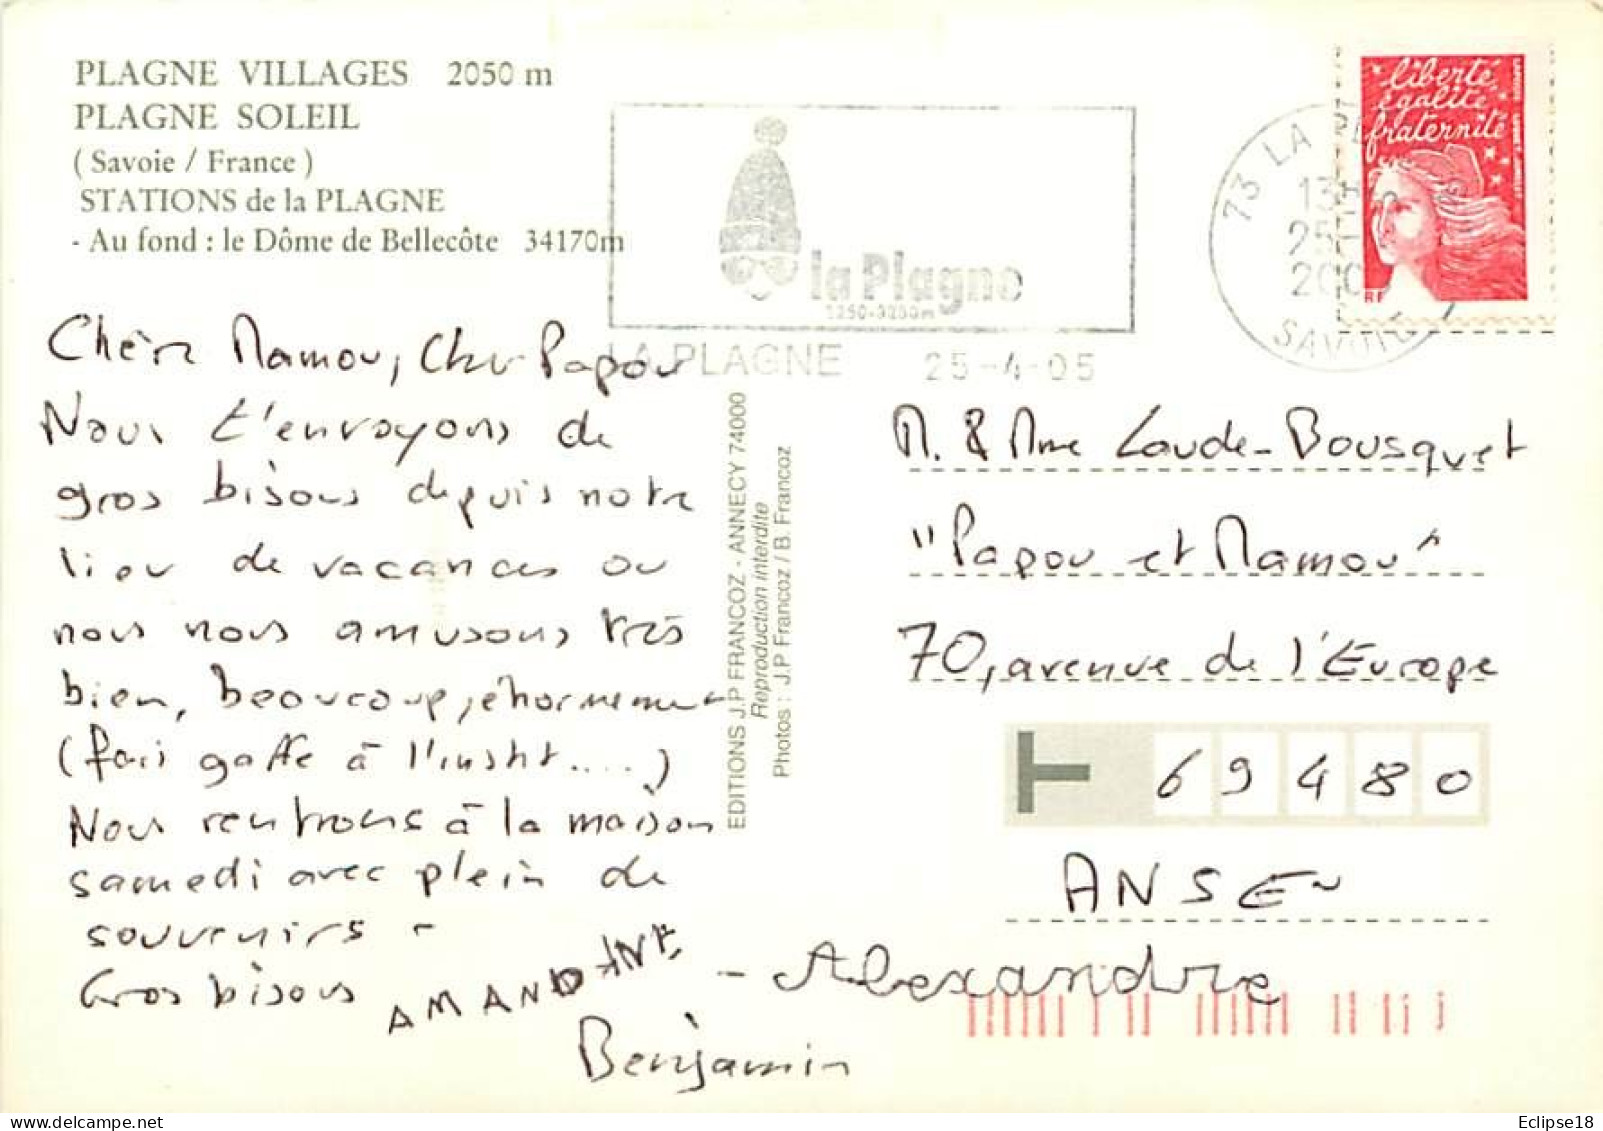 PLAGNE VILLAGES 2050 m
PLAGNE SOLEIL
( Savoie / France )
STATIONS de la PLAGNE
- Au fond : le Dôme de Bellecôte 34170m
la Plagne
1250-3250m
LA PLAGNE 25-4-05
73 LA PL
13H
25
200
SAVOIE
liberté
égalité
fraternité
RF
Chère Mamou, Cher Papou
Nous t'envoyons de
gros bisous depuis notre
lieu de vacances ou
nous nous amusons très
bien, beaucoup, énormement
(fais gaffe à l'instit....)
Nous rentrons à la maison
samedi avec plein de
souvenirs -
Gros bisous
AMANDINE - Alexandre
Benjamin
EDITIONS J.P FRANCOZ - ANNECY 74000
Reproduction interdite
Photos : J.P Francoz / B. Francoz
M. & Mme Laude-Bousquet
"Papou et Mamou"
70, avenue de l'Europe
69480
ANSE
Eclipse18